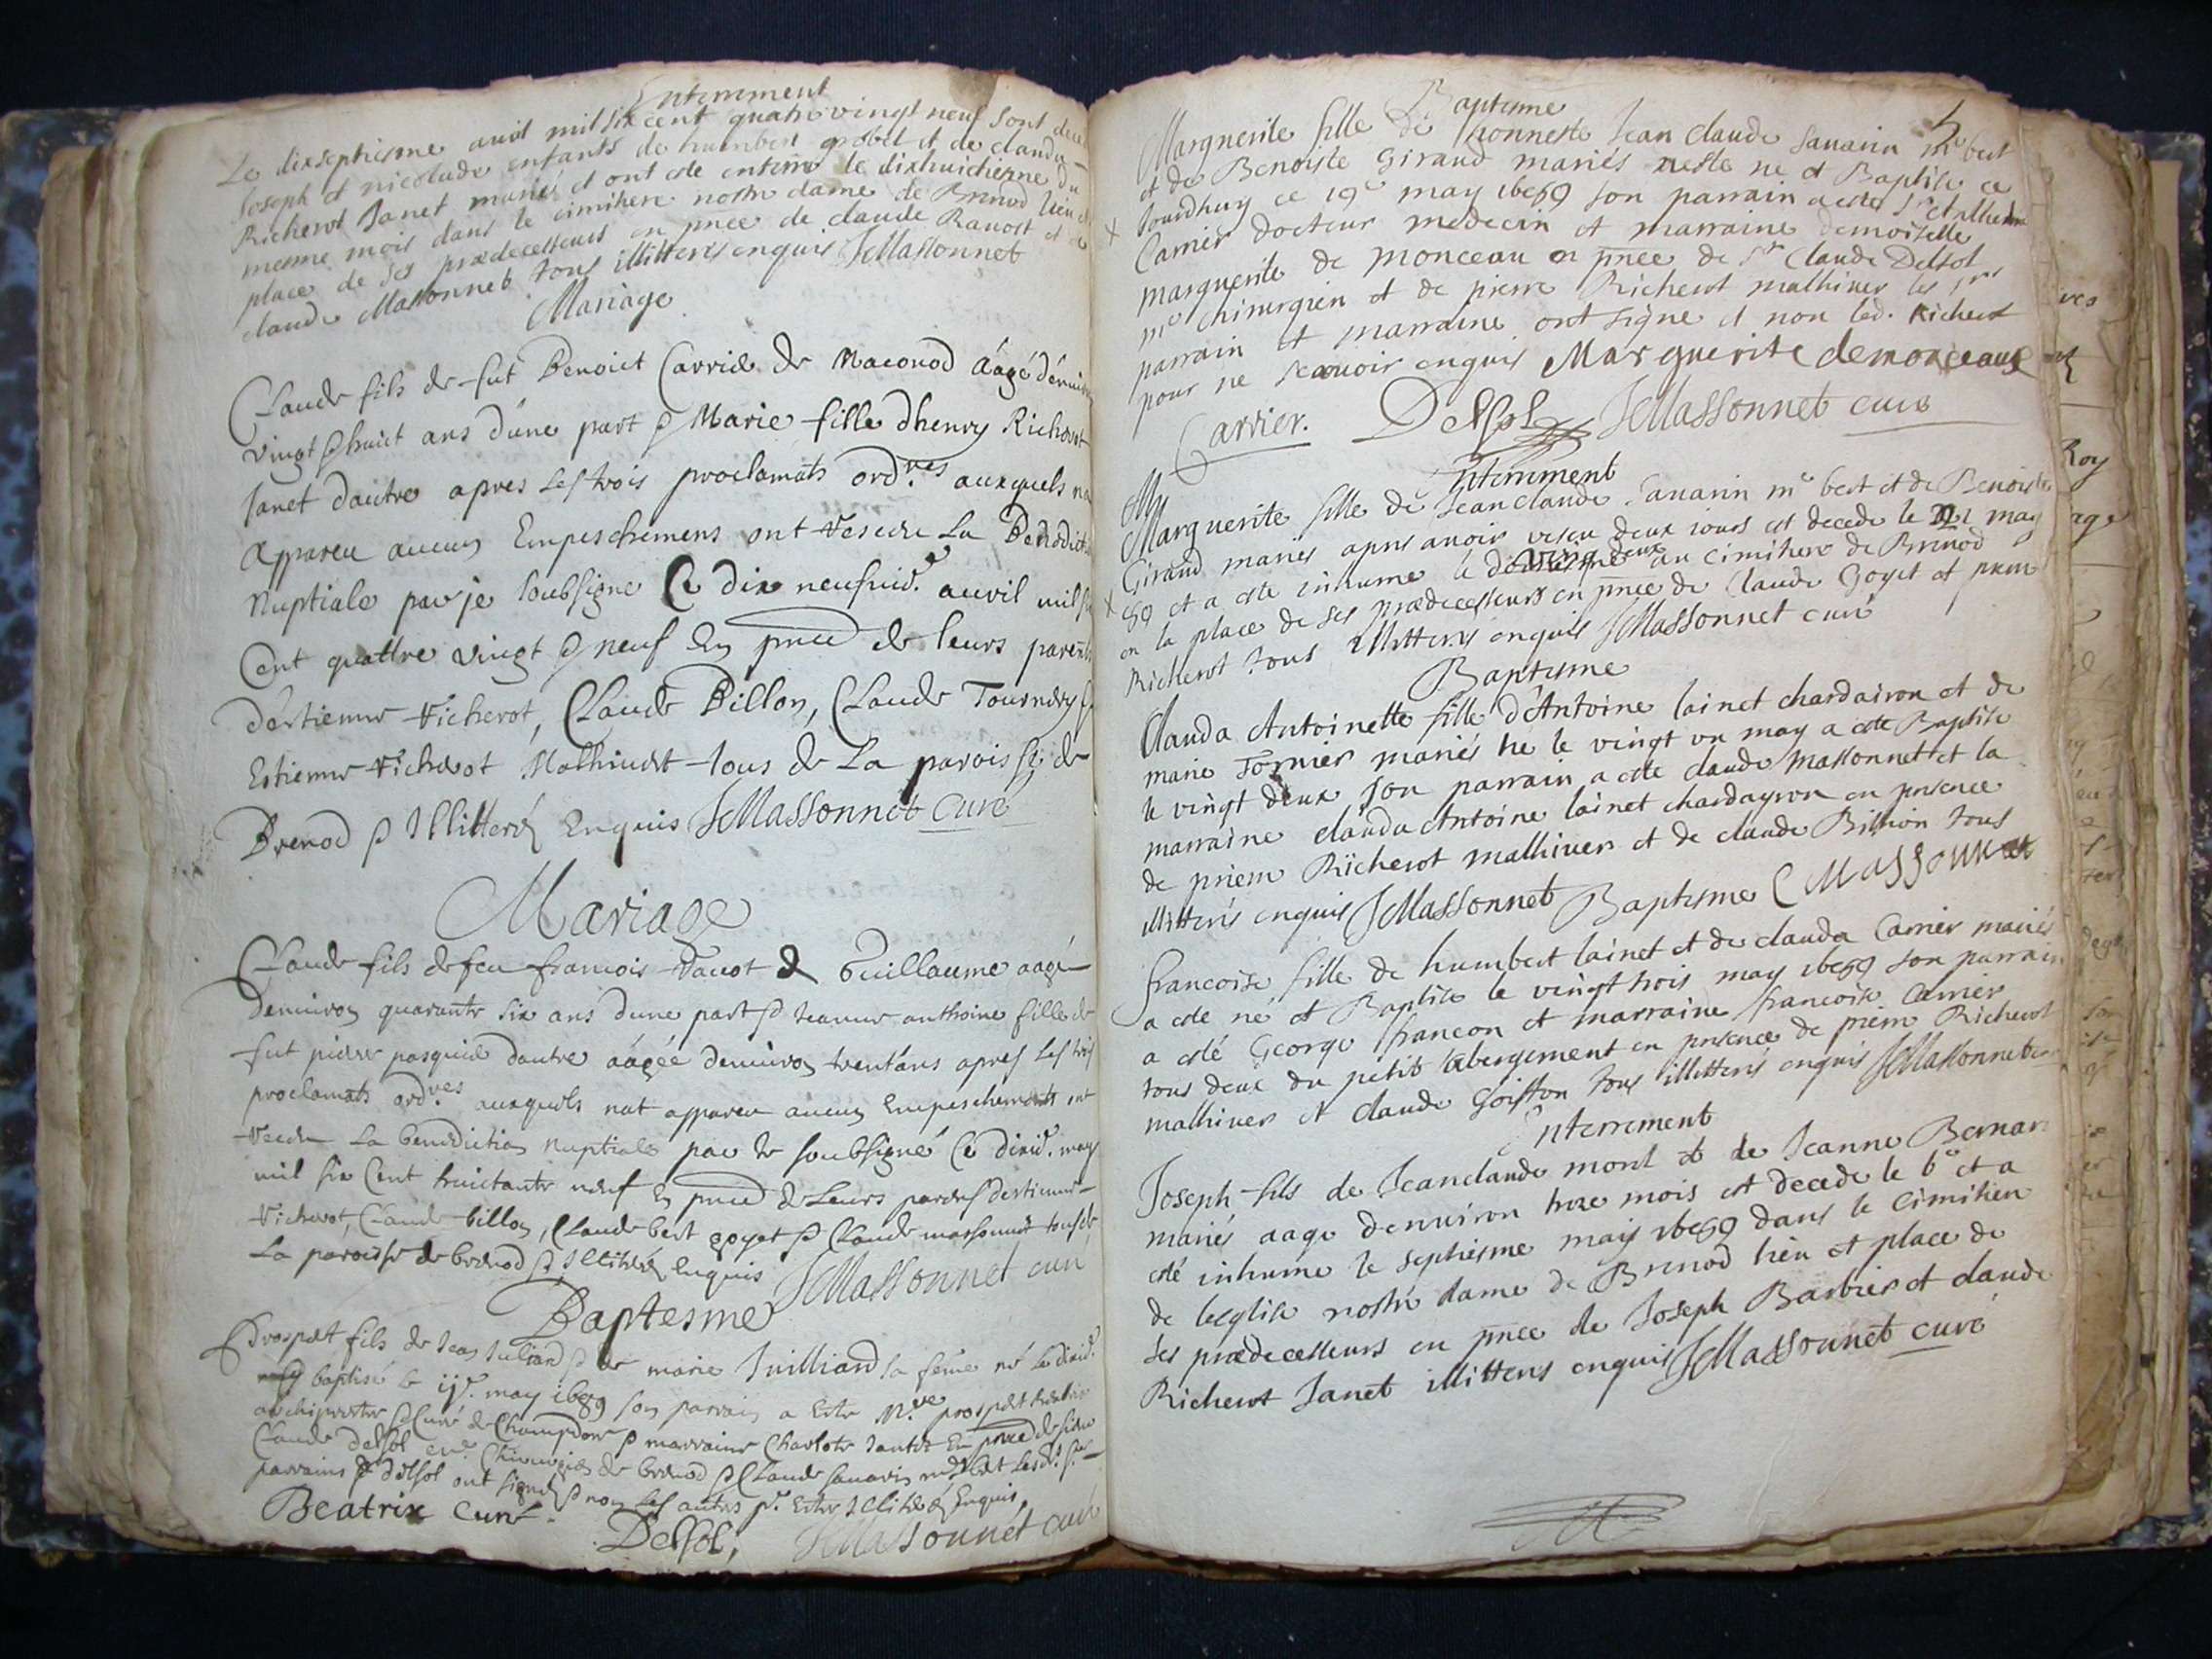 Enterrement
Le dixseptiesme avril mil six cent quatre vingt neuf sont dece
Joseph et nicolade enfants de humbert grobel et de clauda
Richerot Janet mariés et ont este enterré le dixhuictiesme du
mesme mois dans le cimitiere nostre dame de Brenod lieu et
place de ses prædecesseurs en pnce de claude Ravost et de
claude Massonnet tous illitterés enquis JCMassonnet
Mariage
Claude fils de fut Benoict Carrier de Maconod áagé d'enviro
vingt & huict ans d'une part & Marie fille d'henry Richerot
Janet d'autre apres les trois proclamats ord.res auxquels na
apparu aucun Empeschemens ont receu La Benedicti
Nuptiale par je soubsigne Ce dix neufvie. avril mil si
Cent quattre vingt & neuf En pnce de leurs parents
d'estienne Richerot, Claude Billon, Claude Tournery &
Estienne Richerot Malhivert tous de La paroisse de
Brenod & Illitterés Enquis JCMassonnet Curé
Mariage
Claude fils de feu francois Ravot & Guillaume aagé
denviron quarante six ans d'une part & Jeanne anthoine fille de
fut pierre pasquier dautre áagée denviron trent'ans apres les trois
proclamats ord.res auxquels nat apparu aucun Empeschements ont
receu La benediction Nuptiale par le soubsigné Ce dixie. may
mil six Cent huictante neuf En pnce de Leurs parens d'estienne
Richerot, Claude billon, Claude bert goyet & Claude massonnet tous de
La paroisse de brenod & Illitterés Enquis JCMassonnet curé
Baptesme
Prospert fils de Jean Juliand & de marie Juilliard sa feme né le dixie.
may baptisé le ije. may 1689 son parrain a Este M.re prospert
archiprestre & Curé de Champdor & marraine Charlote Jantet En pnce de sieur
Claude delsol Chirurgien de brenod & Claude savarin
parrains & delsol ont signé & non les autres pr. Estre Illiterés Enquis
Beatrix Curé. Delsol, JCMassonnet curé
Baptesme
Marguerite fille de honneste Jean claude savarin me bert
et de Benoiste Giraud mariés este ne et Baptise ce
Jourdhuy ce 19e may 1689 son parrain a este Sr Anthelme
Carrier docteur medecin et marraine demoiselle
marguerite de monceau en pnce de Sr Claude Delsol
me chirurgien et de pierre Richerot malhiver les srs
parrain et marraine ont signe et non led. Richerot
pour ne scavoir enquis Marguerite demonceaux
Carrier. Delsol JCMassonnet curé
Enterrement
Marguerite fille de Jeanclaude savarin me bert et de Benoiste
Giraud mariés apres avoir vescu deux iours est decede le 21 may
89 et a este inhume le vingt deux au cimitiere de Brenod
en la place de ses prædecesseurs en pnce de Claude Goyet et pierre
Richerot tous illitterés enquis JCMassonnet curé
Baptesme
Clauda Antoinette fille d'Antoine lainet chardairon et de
marie Tornier mariés né le vingt un may a este Baptisé
le vingt deux son parrain a este claude massonnet et la
marraine clauda Antoine lainet chardayron en presence
de pierre Richerot malhiver et de claude Billion tous
illitterés enquis JCMassonnet Baptesme C Massonnet
francoise fille de humbert lainet et de clauda Carrier mariés
a este né et Baptise le vingt trois may 1689 son parrain
a esté George francon et marraine francoise Carrier
tous deux du petit abergement en presence de pierre Richerot
malhiver et claude Goiffon tous illitterés enquis JCMassonnet
Enterrement
Joseph fils de Jeanclaude mont et de Jeanne Bernar
mariés aage denviron treze mois est decede le 6e et a
esté inhume le septiesme may 1689 dans le cimitiere
de leglise nostre dame de Brenod lieu et place de
ses prædecesseurs en pnce de Joseph Barbier et claude
Richerot Janet illitterés enquis JCMassonnet curé